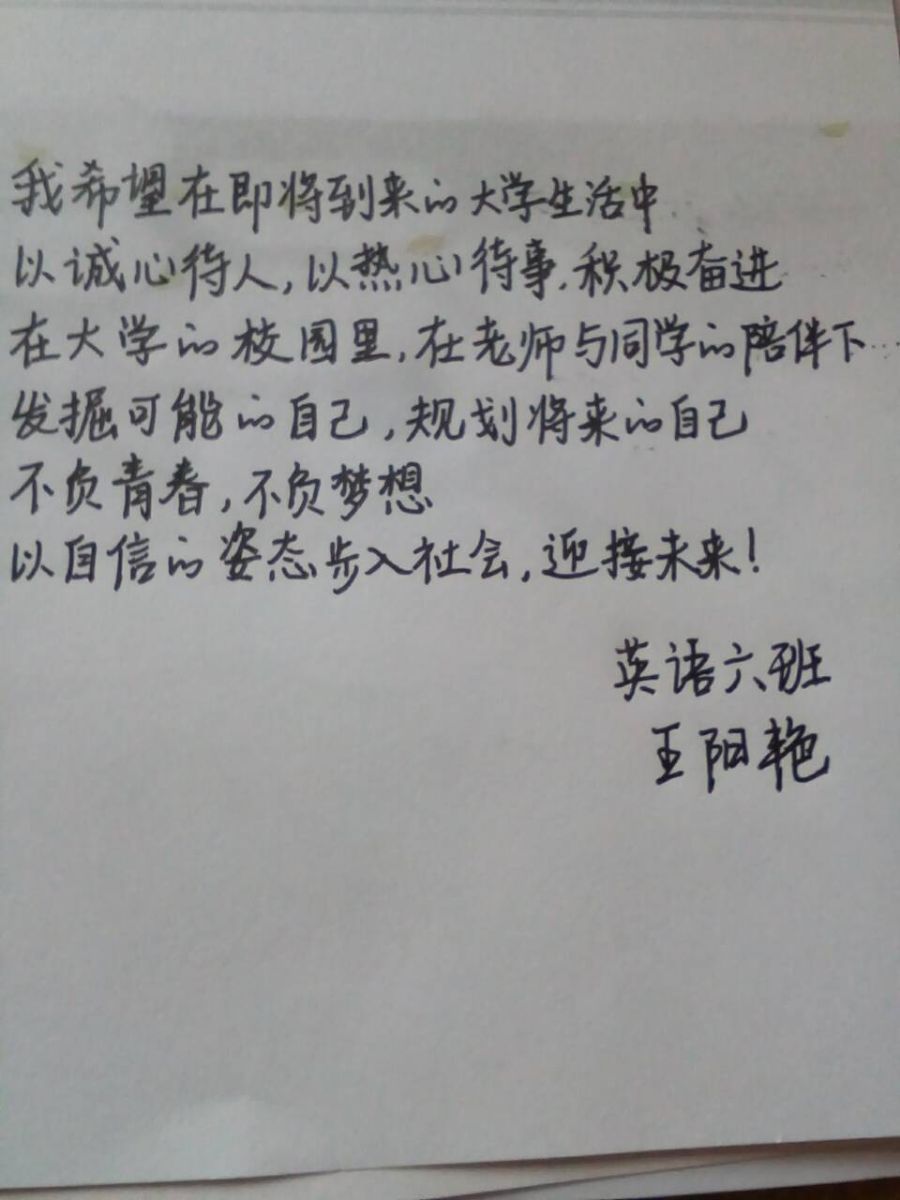 我希望在即将到来的大学生活中
以诚心待人,以热心待事.积极奋进
在大学的校园里,在老师与同学的陪伴下
发掘可能的自己,规划将来的自己
不负青春,不负梦想
以自信的姿态步入社会,迎接未来!
英语六班
王阳艳